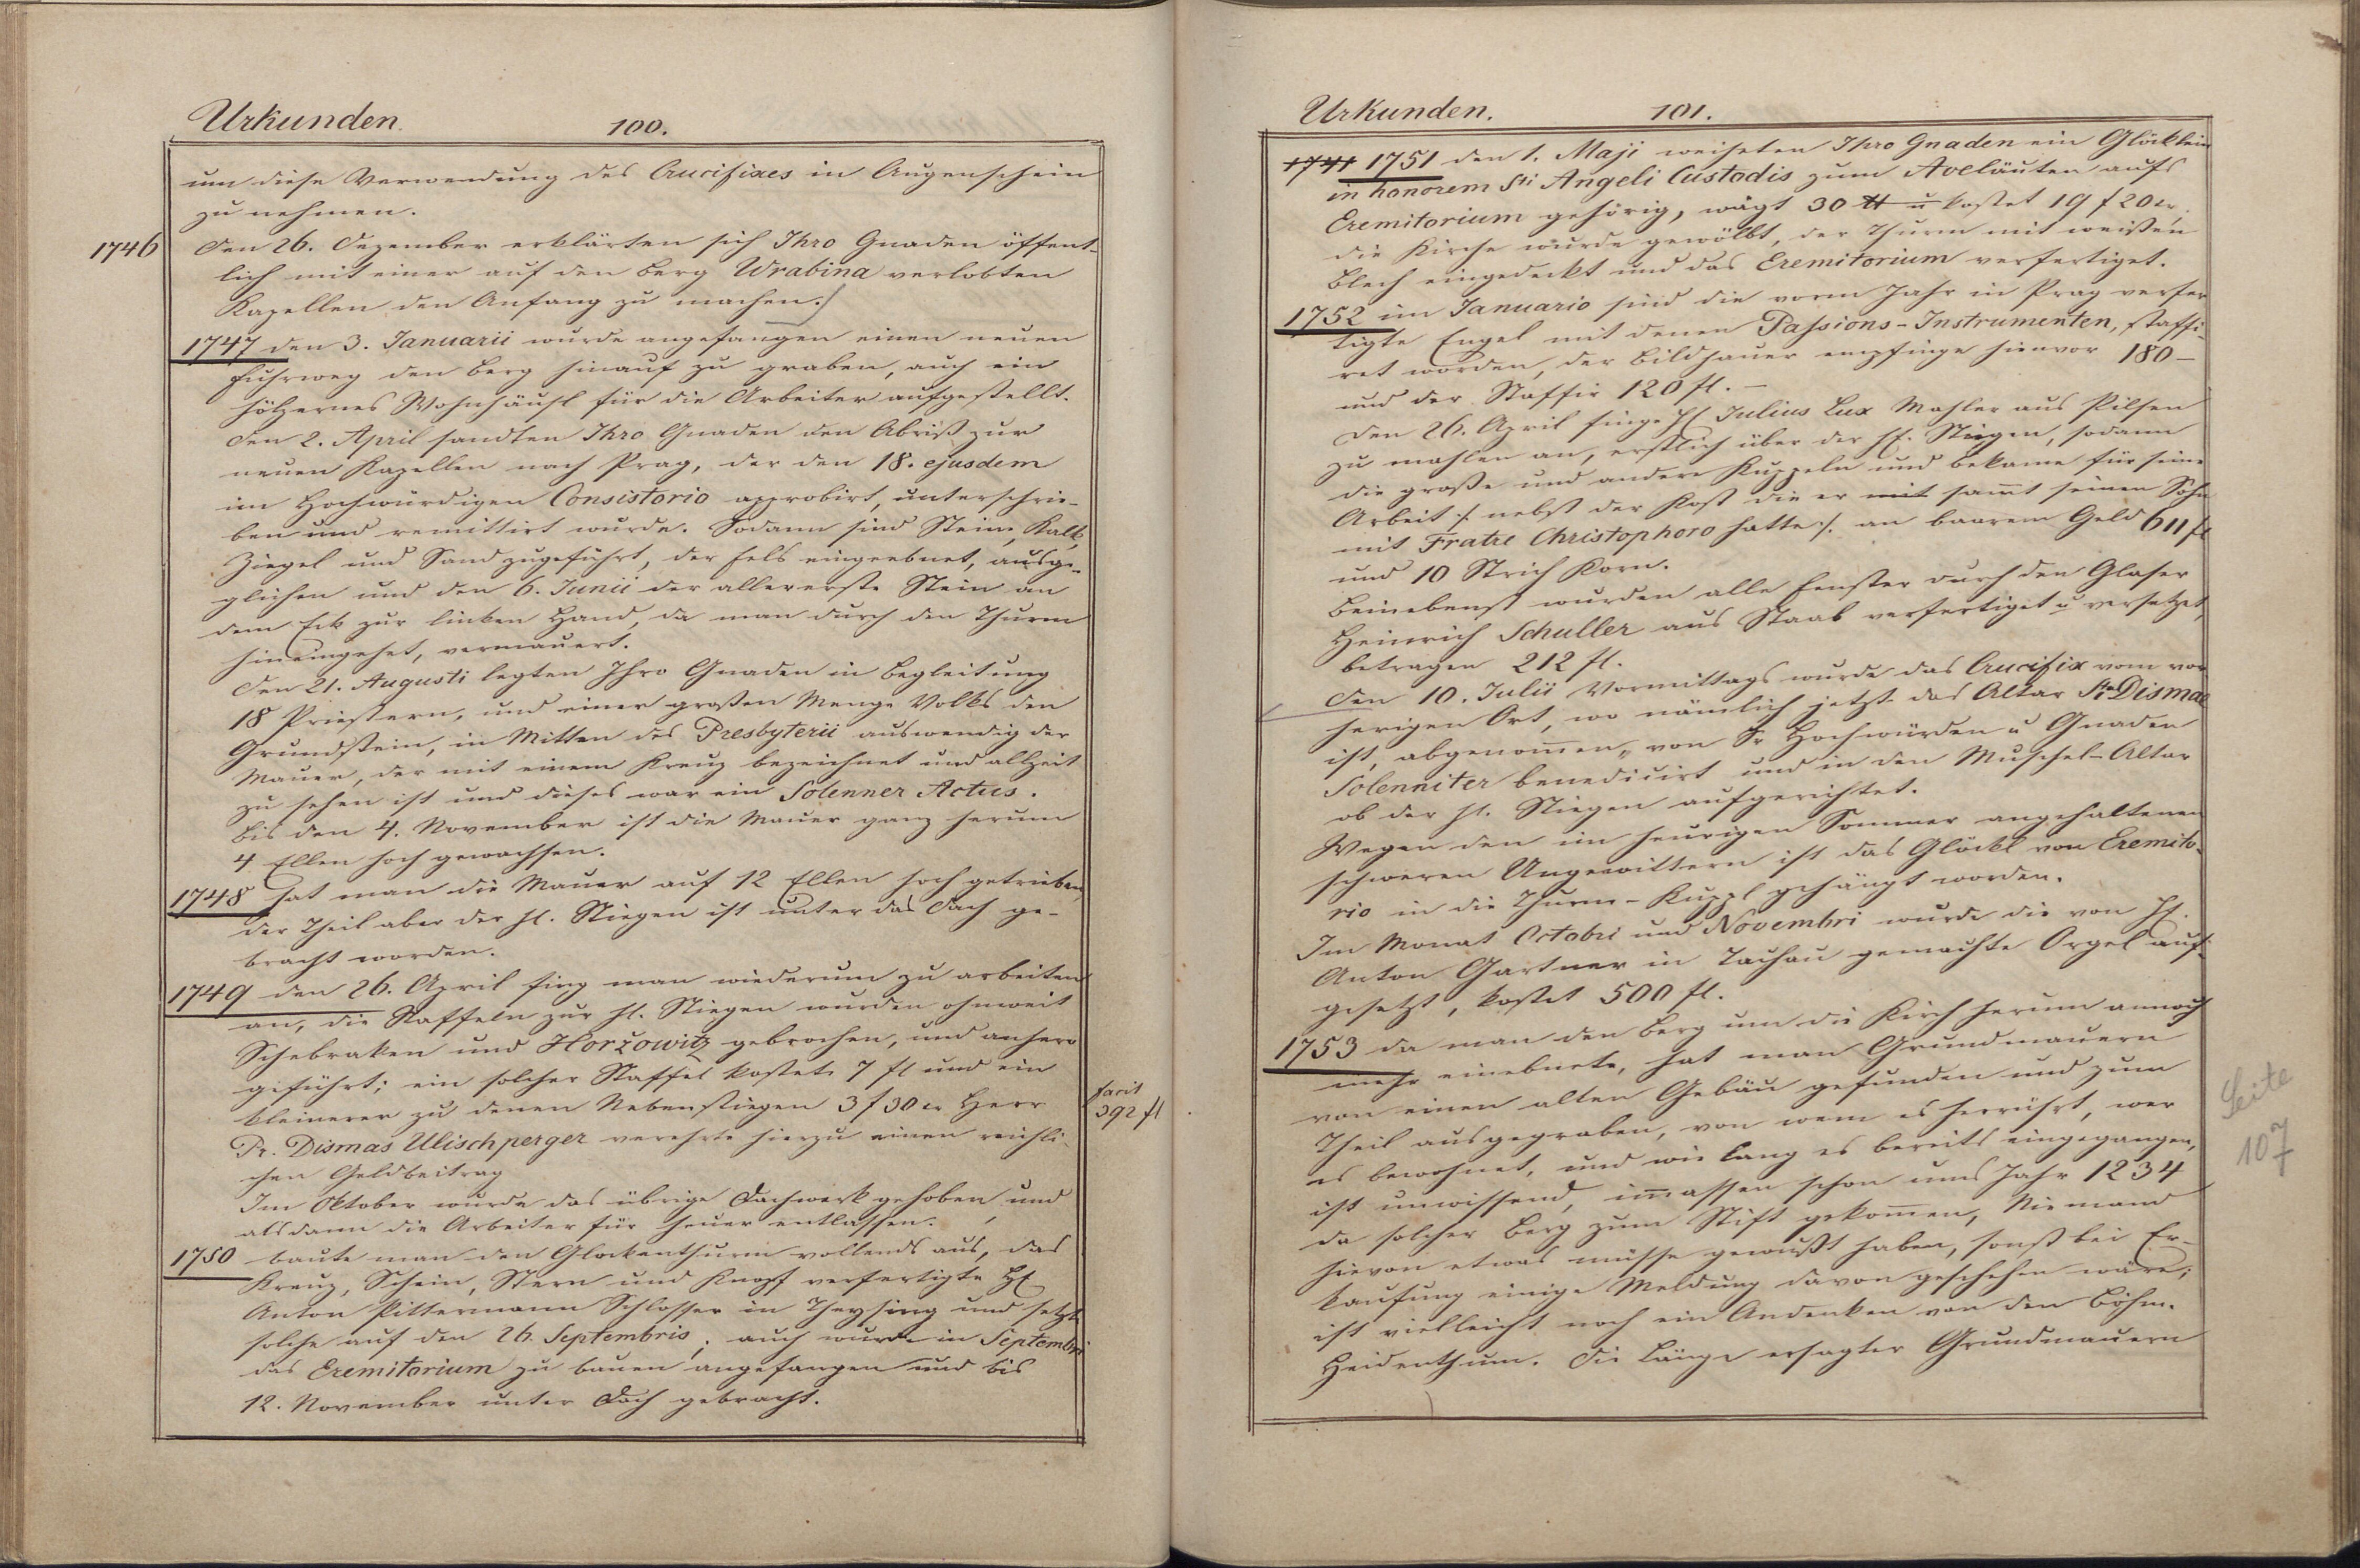 Urkunden. 100.
um diese Verwendung des Crucifixes in Augenschein
zu nehmen.
1746 Den 26. Dezember erklärten sich Ihro Gnaden öffent-
lich mit einer auf den Berg Wrabina verlobten
Kapellen den Anfang zu machen.)
1747 den 3. Januarii wurde angefangen einen neuen
Fuhrweg den Berg hinauf zu graben, auch ein
hölzernes Wohnhäusl für die Arbeiter aufgestellt.
Den 2. April sandten Ihro Gnaden den Abriß zur
neuen Kapellen nach Prag, der den 18. ejusdem
im Hochwürdigen Consistorio approbirt, unterschrie-
ben und remittirt wurde. Sodann sind Stein, Kalk,
Ziegel und Sand zugeführt, der Fels eingeebnet, ausge-
glichen und den 6. Junii der allererste Stein an
dem Eck zur linken Hand, da man durch den Thurm
hineingehet, vermauert.
Den 21. Augusti legten Ihro Gnaden in Begleitung
18 Priestern, und einer großen Menge Volks den
Grundstein, in Mitten des Presbyterii auswendig der
Mauer, der mit einem Kreuz bezeichnet und allzeit
zu sehen ist und dieses war ein Solenner Actus.
Bis den 4. November ist die Mauer ganz herum
4 Ellen hoch gewachsen.
1748 hat man die Mauer auf 12 Ellen hoch getrieben,
der Theil aber der hl. Stiegen ist unter das Dach ge-
bracht worden.
1749 den 26. April fing man wiederum zu arbeiten
an, die Staffeln zur hl. Stiegen wurden ohnweit
Schebraken und Horžowitz gebrochen, und anhero
geführt; ein solcher Staffel kostet 7 fl und ein
kleinerer zu denen Nebenstiegen 3 f 30 xr Herr
facit
392 fl
Pr. Dismas Ulischperger verehrte hierzu einen reichli-
chen Geldbeitrag
Im Oktober wurde das übrige Dachwerk gehoben und
alsdann die Arbeiter für heuer entlassen.
1750 baute man den Glockenthurm vollends aus, das
Kreuz, Schein, Stern und Knopf verfertigte H.
Anton Pittermann Schlosser in Theysing und setzt
solche auf den 26. Septembris; auch wurde in Septembri
das Eremitorium zu bauen angefangen und bis
12. November unter Dach gebracht.
Urkunden. 101.
1741 1751 den 1. Maji weiheten Ihro Gnaden ein Glöcklein
in honorem Sti Angeli Custodis zum Aveläuten aufs
Eremitorium gehörig, wägt 30 ℔ u kostet 19 f 20 xr.
die Kirche wurde gewölbt, der Thurm mit weißen
Blech eingedeckt und das Eremitorium verfertiget.
1752 im Januario sind die vorm Jahr in Prag verfer
tigte Engel mit denen Passions-Instrumenten, staffi-
ret worden, der Bildhauer empfinge hievor 180 –
und der Staffir 120 fl. –
Den 26. April finge H Julius Lux Mahler aus Pilsen
zu mahlen an, erstlich über der hl. Stiegen, sodann
die große und andere Kuppeln und bekame für seine
Arbeit :/ nebst der Kost die er mit sammt seinen Sohn
mit Fratre Christophoro hatte :/ an baarem Geld 611 fl
und 10 Strich Korn.
Beinebenst wurden alle Fenster durch den Glaser
Heinrich Schuller aus Staab verfertiget u versetzet,
betragen 212 fl.
Den 10. Julii Vormittags wurde das Crucifix vom vor
herigen Ort, wo nämlich jetzt das Altar Sti Dismae
ist, abgenommen, von Sr Hochwürden u Gnaden
Solenniter benedicirt und in den Muschel-Altar
ob der hl. Stiegen aufgerichtet.
Wegen den im heurigen Sommer angehaltenen
schweren Ungewittern ist das Glöckl von Eremito-
rio in die Thurm-Kuppl gehängt worden.
Im Monat Octobri und Novembri wurde die von H.
Anton Gartner in Tachau gemachte Orgel auf-
gesetzt, kostet 500 fl.
1753 da man den Berg um die Kirch herum annoch
mehr einebnete, hat man Grundmauern
von einen alten Gebäu gefunden und zum
Theil ausgegraben, von wem es herrührt, wer
es bewohnet, und wie lang es bereits eingegangen,
ist unwissend, immassen schon ums Jahr 1234
da solcher Berg zum Stift gekommen, Niemand
hievon etwas müsse gewußt haben, sonst bei Er-
kaufung einige Meldung davon geschehen wäre;
ist vielleicht noch ein Andenken von den Böhm.
Heidenthum. Die Länge ersagter Grundmauern
Seite
107